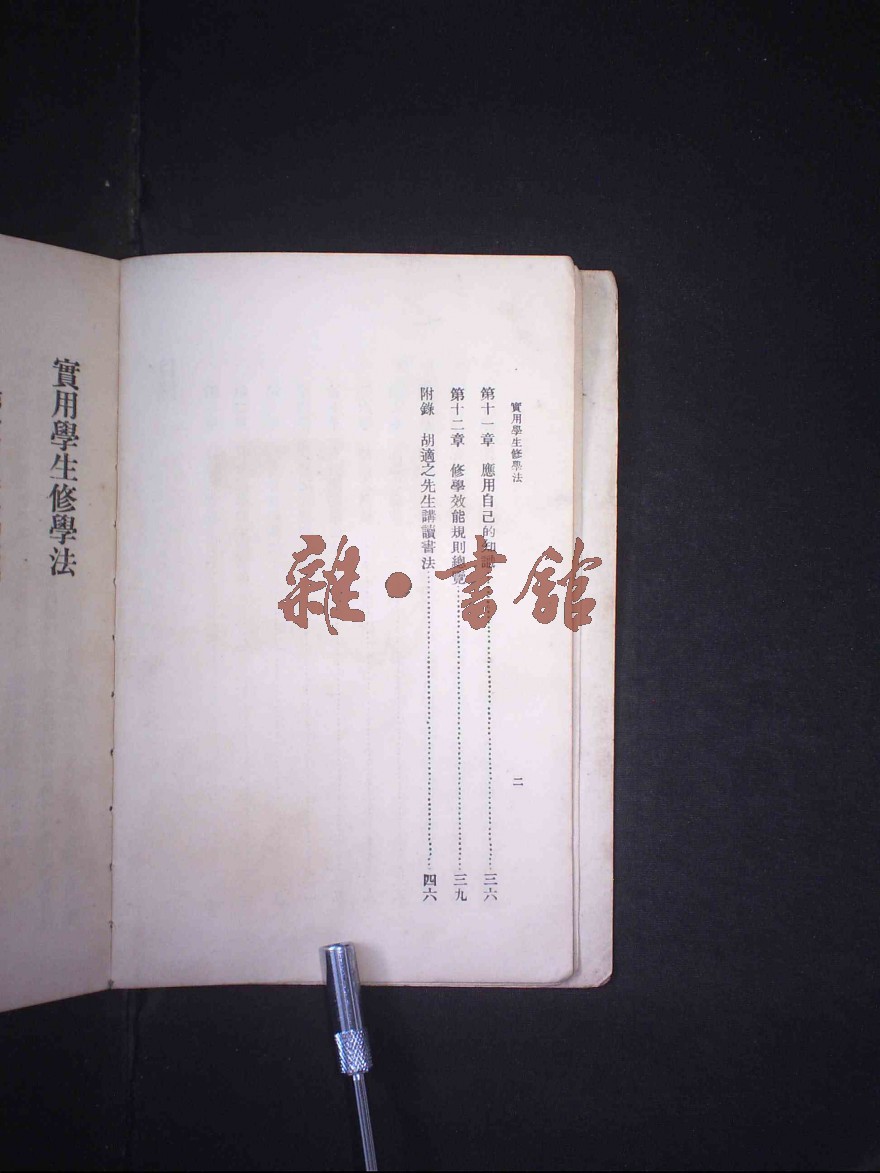 實用學生修學法
二
第十一章　應用自己的知識……三六
第十二章　修學效能規則總覽……三九
附錄　胡適之先生講讀書法……四六
實用學生修學法
雜·書館